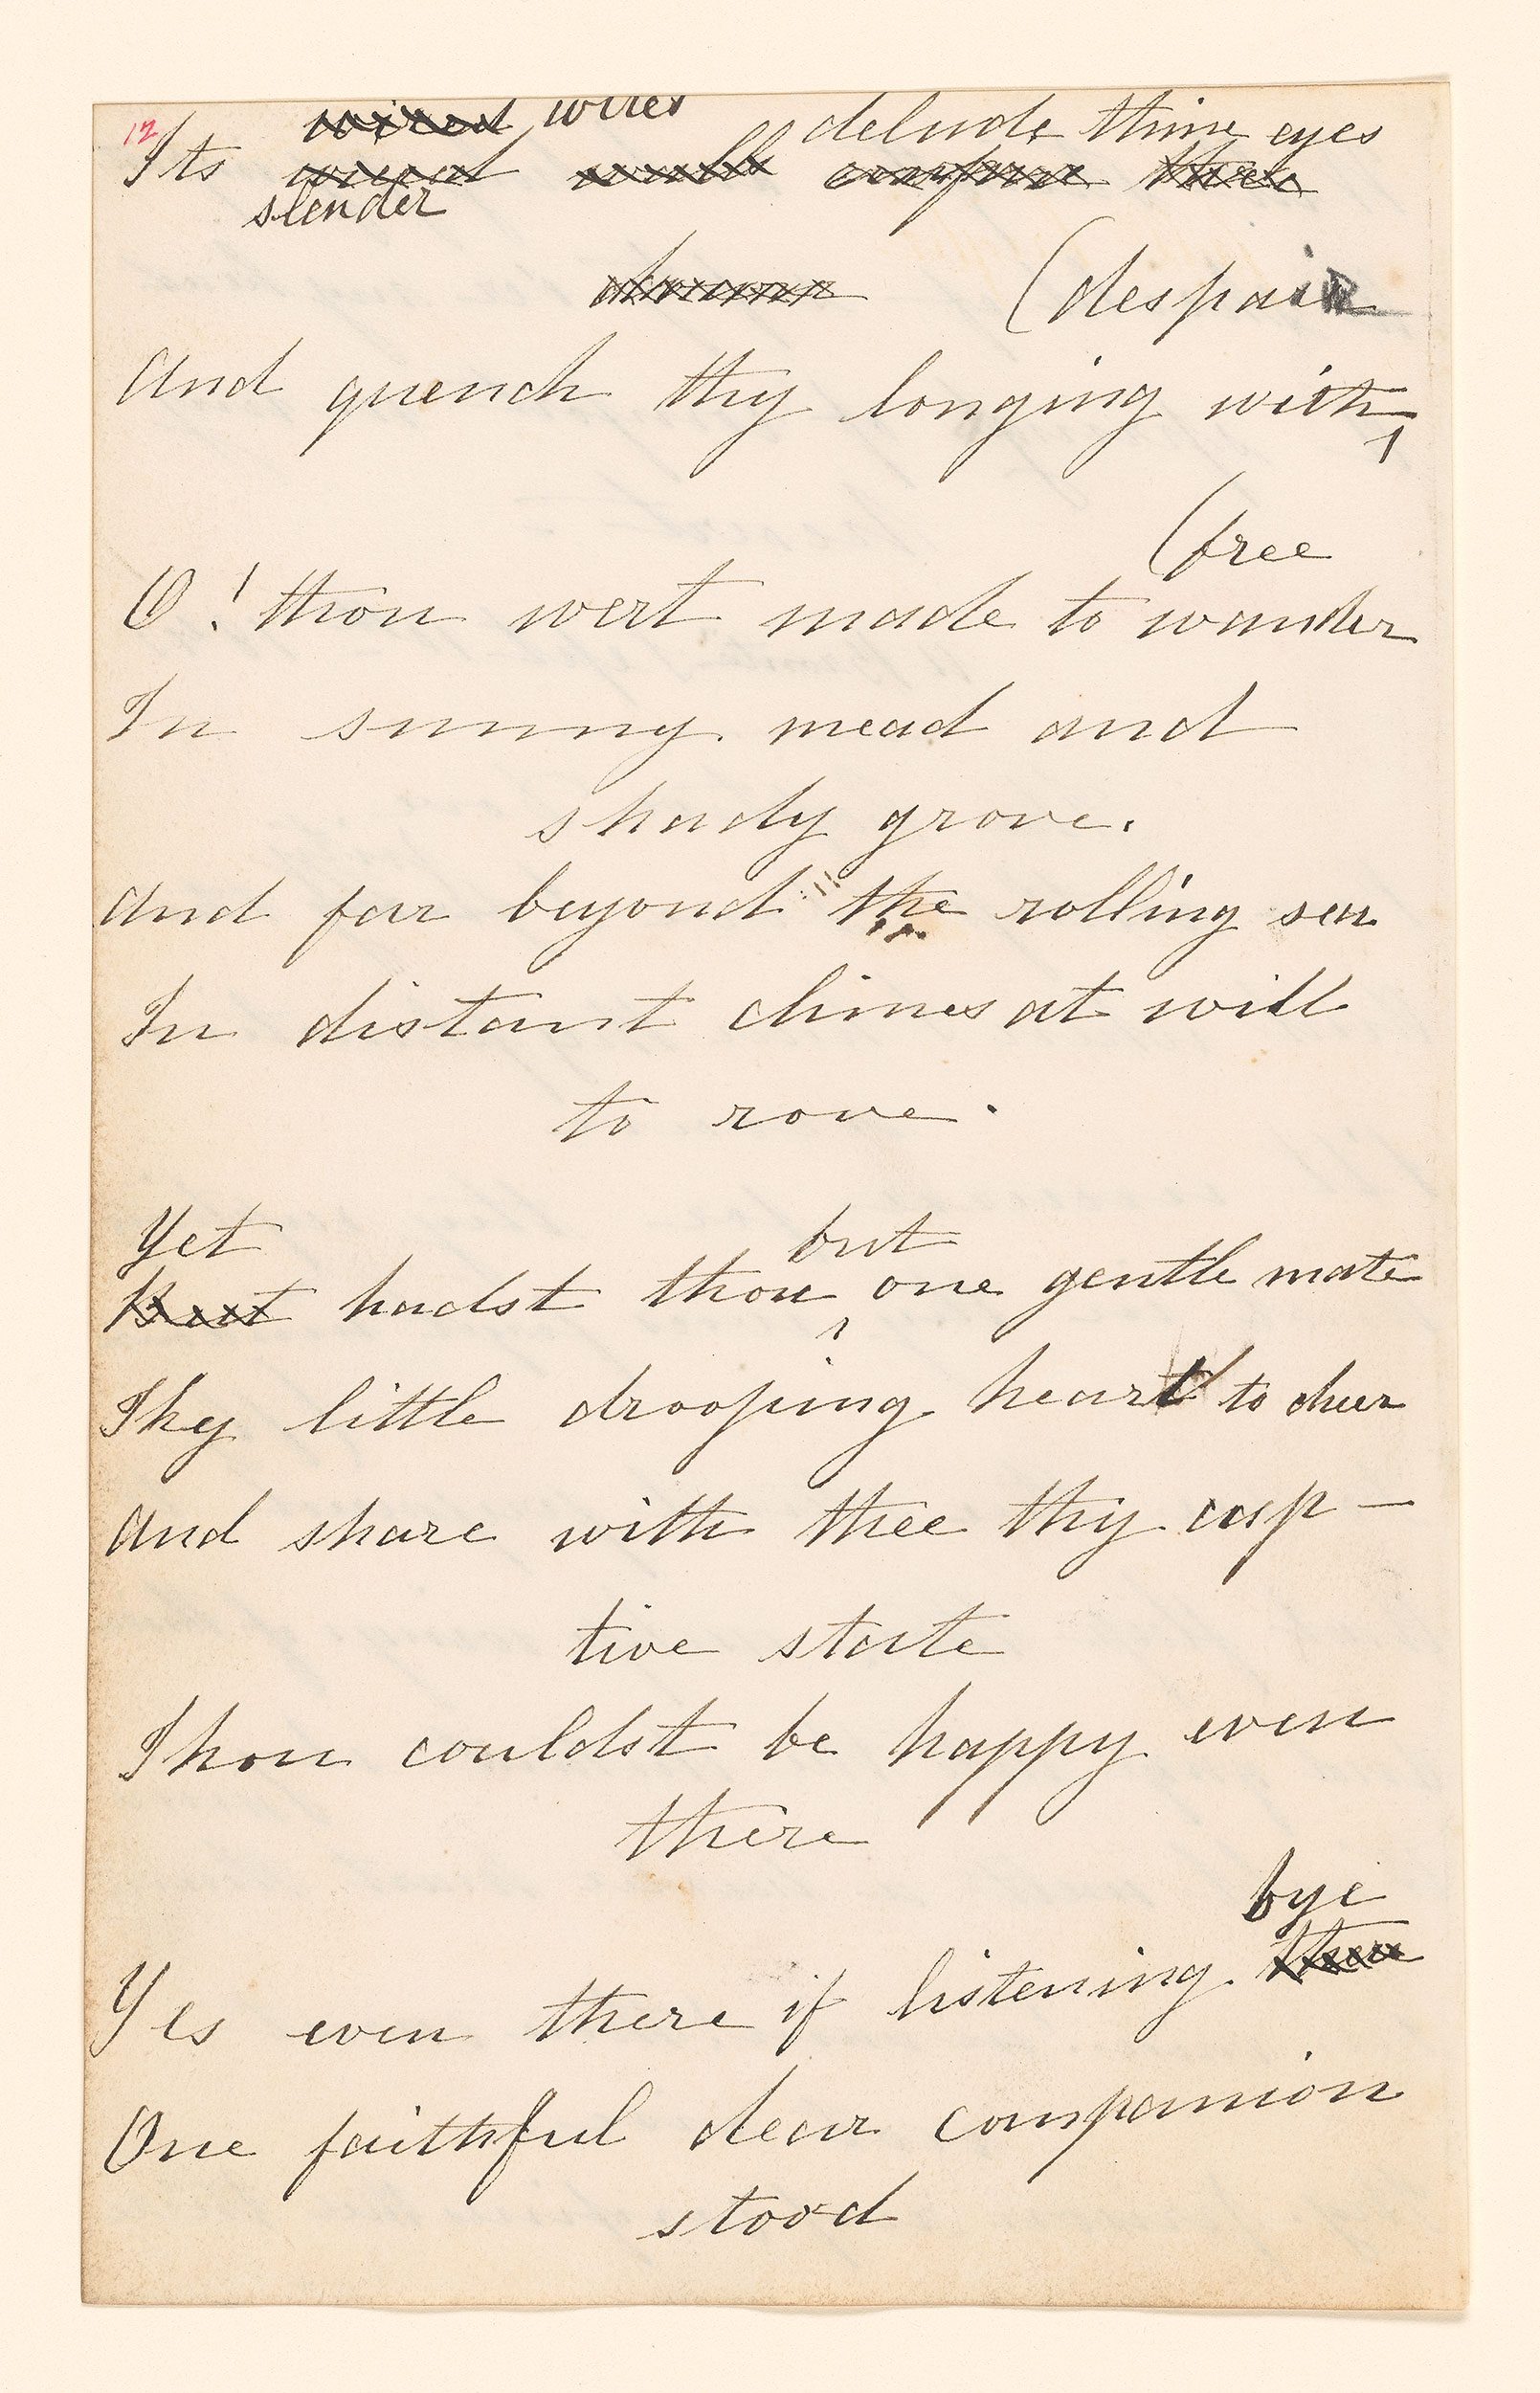 12
wired wires delude thine eyes
Its wired walls confine thee
slender
(despair
And quench thy longing with
(free
O! thou wert made to wander
In sunny mead and
shady grove.
And far beyond the rolling sea
In distant climes at will
to rove.
Yet but
But hadst thou one gentle mate
Thy little drooping heart to cheer
And share with thee thy cap-
tive state
Thou couldst be happy even
there
bye
Yes even there if listening
One faithful dear companion
stood